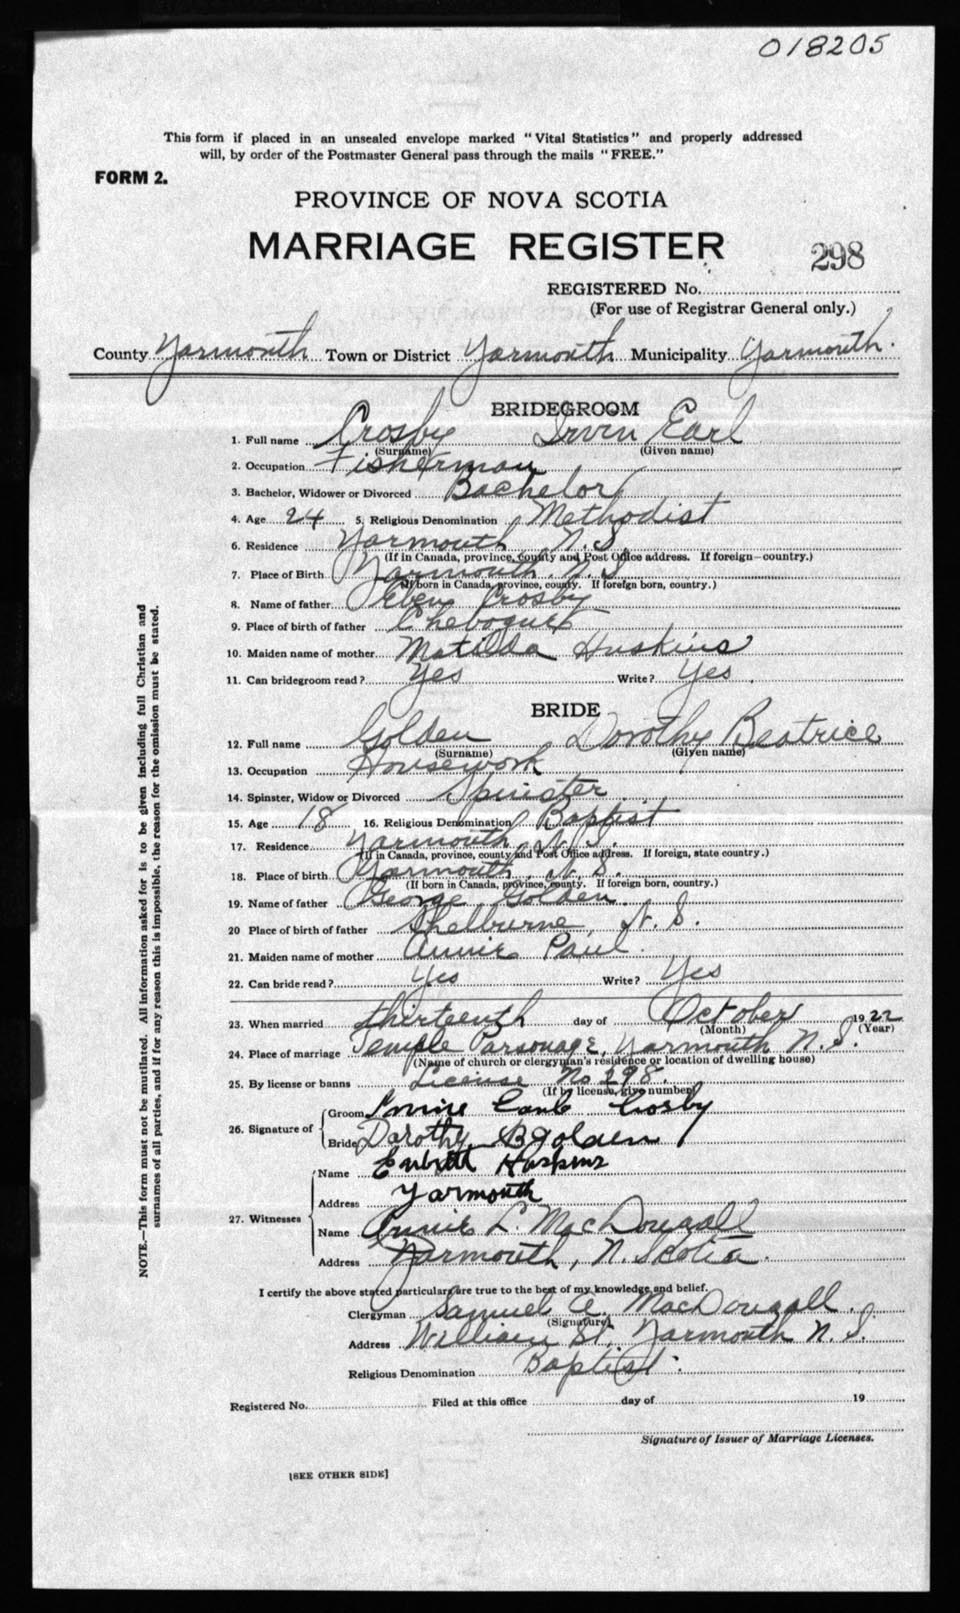 018205
This form if placed in an unsealed envelope marked "Vital Statistics" and properly addressed
will, by order of the Postmaster General pass through the mails "FREE."
FORM 2.
PROVINCE OF NOVA SCOTIA
MARRIAGE REGISTER
298
REGISTERED No.
(For use of Registrar General only.)
County Yarmouth Town or District Yarmouth Municipality Yarmouth.
BRIDEGROOM
1. Full name Crosby Irvin Earl
(Surname) (Given name)
2. Occupation Fisherman
3. Bachelor, Widower or Divorced Bachelor
4. Age 24 5. Religious Denomination Methodist
6. Residence Yarmouth N.S.
(If in Canada, province, county and Post Office address. If foreign—country.)
7. Place of Birth Yarmouth N.S.
(If born in Canada, province, county. If foreign born, country.)
8. Name of father Eben Crosby
9. Place of birth of father Chebogue
10. Maiden name of mother Matilda Huskins
11. Can bridegroom read? Yes Write? Yes.
BRIDE
12. Full name Golden Dorothy Beatrice
(Surname) (Given name)
13. Occupation Housework
14. Spinster, Widow or Divorced Spinster
15. Age 18 16. Religious Denomination Baptist
17. Residence Yarmouth, N.S.
(If in Canada, province, county and Post Office address. If foreign, state country.)
18. Place of birth Yarmouth, N.S.
(If born in Canada, province, county. If foreign born, country.)
19. Name of father George Golden.
20 Place of birth of father Shelburne, N.S.
21. Maiden name of mother Annie Paul.
22. Can bride read? Yes Write? Yes
23. When married thirteenth day of October 1922
(Month) (Year)
24. Place of marriage Temple Parsonage, Yarmouth N.S.
(Name of church or clergyman's residence or location of dwelling house)
25. By license or banns License No 298.
(If by license, give number)
26. Signature of
Groom Crosby
Bride Dorothy B Golden
27. Witnesses
Name Huskins
Address Yarmouth
Name Annie L. MacDougall
Address Yarmouth, N. Scotia.
I certify the above stated particulars are true to the best of my knowledge and belief.
Clergyman Samuel A. MacDougall.
(Signature)
Address William St, Yarmouth N.S.
Religious Denomination Baptist.
Registered No. Filed at this office day of 19
Signature of Issuer of Marriage Licenses.
[SEE OTHER SIDE]
NOTE.—This form must not be mutilated. All information asked for is to be given including full Christian and
surnames of all parties, and if for any reason this is impossible, the reason for the omission must be stated.